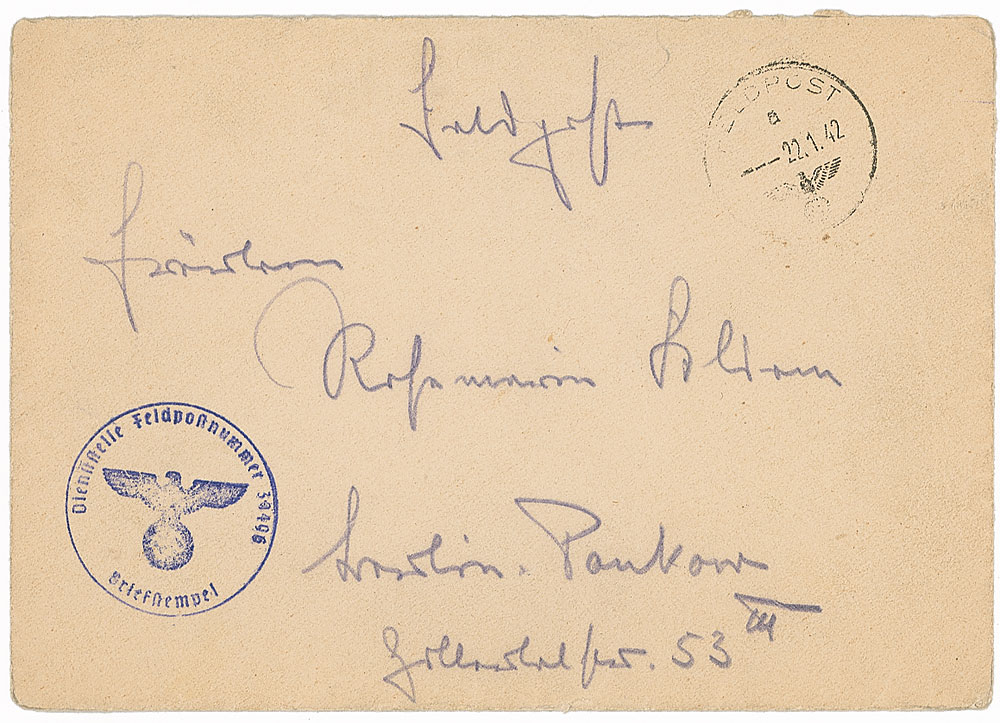 Feldpost
FELDPOST
a
22.1.42
Fräulein
Rosemarie
Dienststelle Feldpostnummer
Briefstempel
Berlin-Pankow
Zillertalstr. 53 III